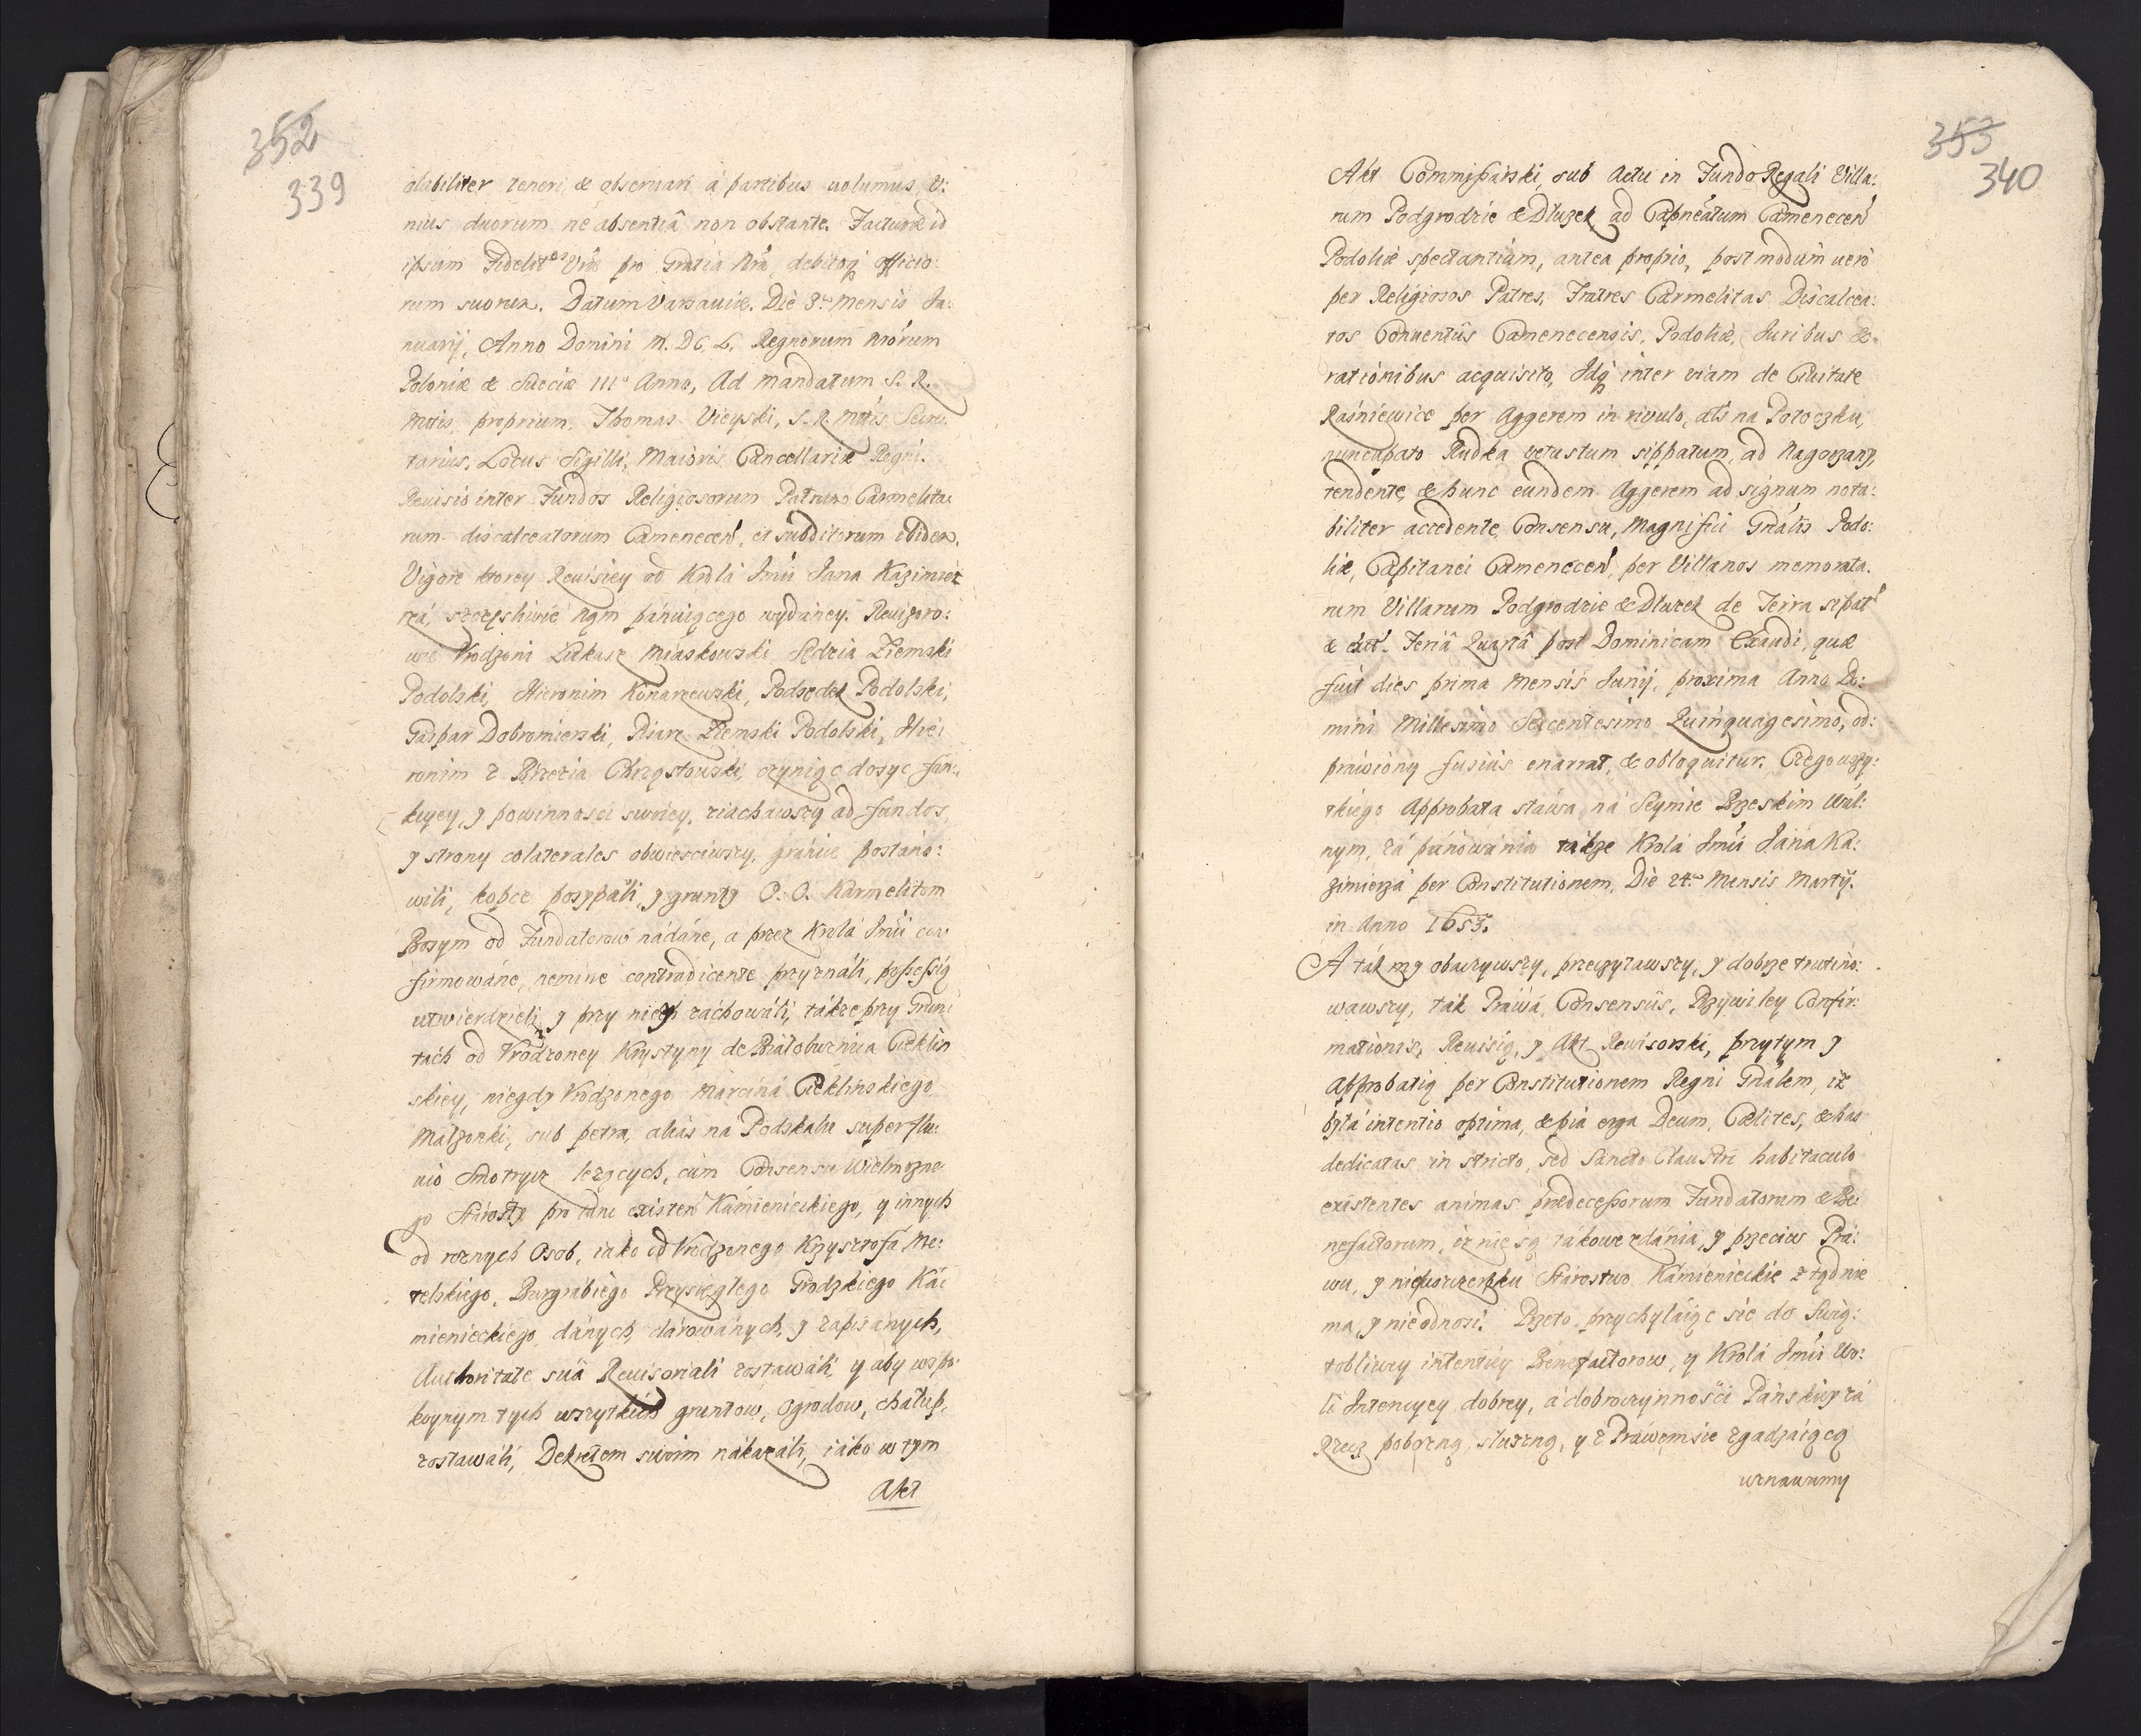 352
339
olabiliter teneri, & obseruari à partibus uolumus, V:
nius duorum ne absentiâ non obstante. Facturæ id
ipsum Fidelit es Vræ pro Gratia Nrâ, debitoq officio:
rum suorum. Datum Varsauiæ. Die 8. Mensis Ja:
nuarij, Anno Domini M. DC. L. Regnorum nrórum
Poloniæ & Sueciæ III o Anno, Ad mandatum S. R.
Mttis. proprium. Thomas Vieyski, S. R. Mttis Secre:
tarius. Locus Sigilli, Maioris Cancellariæ Regni.
Reuisio inter Fundos Religiosorum Patrum Carmelita:
rum discalceatorum Camenecen, et subditorum ibidem.
Vigore ktorey Reuisiey od Krola Jmći Jana Kazimier
rza, szczęsliwie Nąm pánuiącego wydáney. Reuizoro:
wie Vrodzoni Łukasz Miaskowski Sędzia Ziemski
Podolski, Hieronim Konarzewski, Podsędek Podolski,
Gaspar Dobromierski, Pisarz Ziemski Podolski, Hie:
ronim z Brzezia Chrząstowski, czyniąc dosyc fun:
kcyey, y powinnosci swoiey, ziachawszy ad fundos,
y strony colaterales obwiesciwszy, gránice postáno:
wili, kopce posypáli, y grunty O. O. Karmelitom
Bosym od Fundatorow nádáne, a przez Krolá Jmći con
firmowáne, nemine contradicente przyználi, possessią
utwierdzieli, y przy niey záchowáli, tákże przy Grun:
tách od Vrodzoney Krystyny de Białoburnica Cieklin
skiey, niegdy Vrodzonego Marciná Cieklinskiego
Małzonki, sub petra, aliás ná Podskalu super flu:
uio Smotrycz leżących, cum Consensu Wielmozne
go Stárosty pro tunc existen Kámienieckiego, y innych
od roznych Osob, iako od Vrodzonego Krzysztofa Me:
telskiego, Burgrabiego Przysięgłego Grodzkiego Ká:
mienieckiego, dánych, dárowánych, y zapisánych,
Authoritate suâ Reuisoriali zostawáli, y aby w spo
koynym tych wszytkich gruntow, Ogrodow, cháłup,
zostawáli, Dekretem swoim nákazáli, iáko w tym
Akt
353
340
Akt Commissárski, sub Actu in Fundo Regali Villa:
rum Podgrodzie & Dłużek ad Capneátum Camenecen
Podoliæ spectantium, antea proprio, post modum uero
per Religiosos Patres, Fratres Carmelitas Discalcea:
tos Conuentûs Camenecensis, Podoliæ, Juribus &
rationibus acquisito, Idq inter viam de Ciuitate
Raśniewice per Aggerem in riuulo, als na Potoczku,
nuncupato Rudka vetustum sippatum, ad Nagorzany,
tendente, & hunc eundem Aggerem ad signum nota:
biliter accedente, Consensu, Magnifici Gnális Podo:
liæ, Capitanei Camenecen, per Villanos memorata:
rum Villarum Podgrodzie & Dłużek de Terra sipat
& ext. Feriâ Quartâ post Dominicam Exaudi, quæ
fuit dies prima Mensis Junij, proxima Anno Do:
mini Millesimo Sexcentesimo Quinquagesimo, od:
práwiony fusius enarrat, & obloquitur. Czego wszy:
tkiego Approbata stáwsa ná Seymie Brzeskim Wál:
nym, zá pánowánia tákże Krolá Jmći Jáná Ka:
zimierzá per Constitutionem, Die 24. Mensis Martij.
in Anno 1653.
A ták my obaczywszy, przeczytawszy, y dobrze trutino:
wawszy, tak Práwá, Consensûs, Przywiley Confir:
mationis, Reuisią, y Akt Rewisorski, przytym y
Approbatią per Constitutionem Regni Gnálem, iż
byłá intentio optima, & pia erga Deum, Cælites, & has
dedicatas in stricto, sed Sancto Claustri habitaculo
existentes animas prædecessorum Fundatorum & Be:
nefactorum, iż nie są tákowe zdánia, y przeciw Prá:
wu, y nieuszczerbku Stárostwo Kámienieckie z tąd nie
ma, y nieodnosi. Przeto przychyláiąc sie do Swią:
tobliwey intentiey Benefactorow, y Krolá Jmći Wo:
li Intencyey dobrey, á dobroczynnosci Páńskiey zá
Rzecz pobożną, słuszną, y z Práwem sie zgadzáiącą
uznawamy